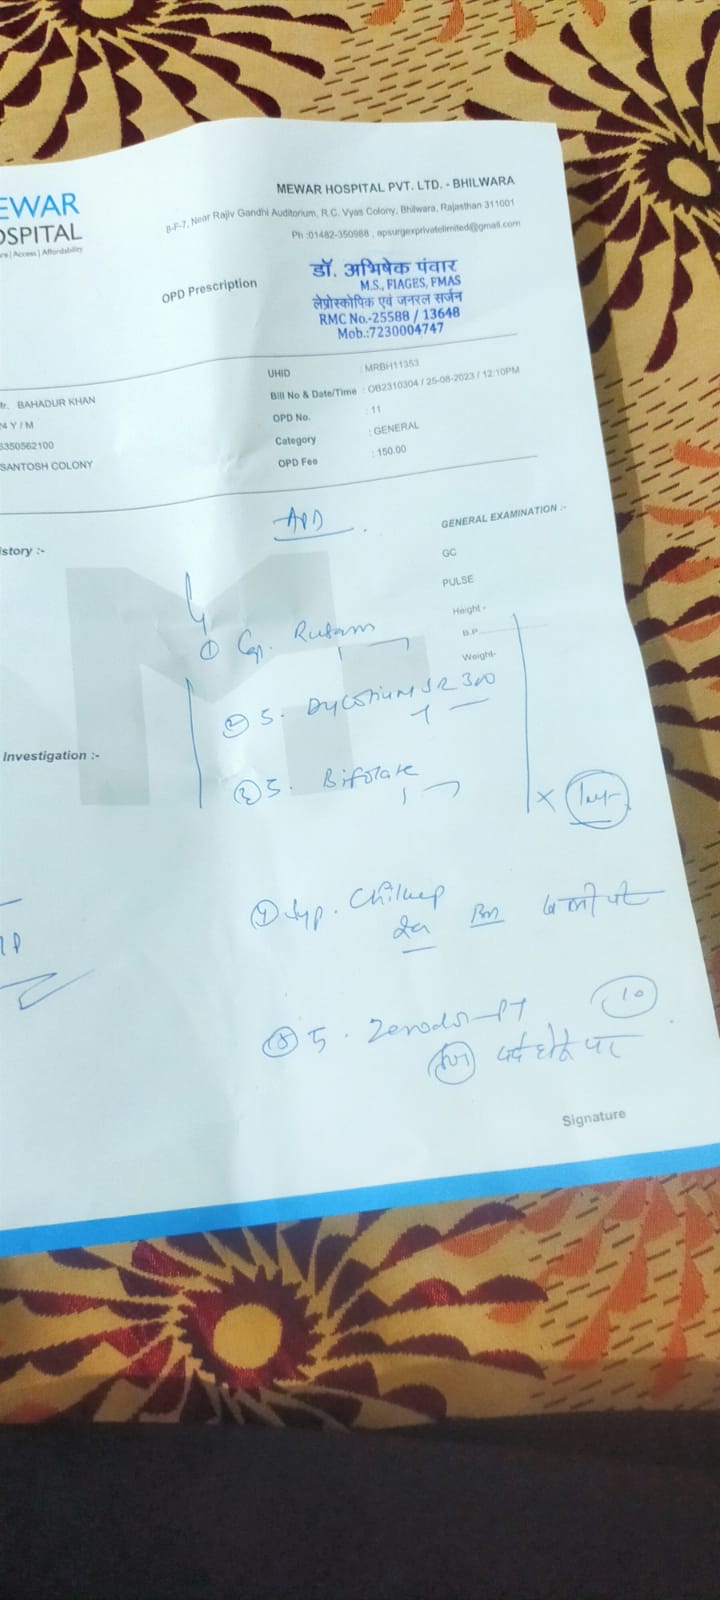 EWAR
OSPITAL
re | Access | Affordability
MEWAR HOSPITAL PVT. LTD. - BHILWARA
8-F-7, Near Rajiv Gandhi Auditorium, R.C. Vyas Colony, Bhilwara, Rajasthan 311001
Ph :01482-350988 , apsurgexprivatelimited@gmail.com
OPD Prescription
डॉ. अभिषेक पंवार
M.S., FIAGES, FMAS
लेप्रोस्कोपिक एवं जनरल सर्जन
RMC No.-25588 / 13648
Mob.:7230004747
Mr. BAHADUR KHAN
4 Y / M
6350562100
SANTOSH COLONY
UHID : MRBH11353
Bill No & Date/Time : OB2310304 / 25-08-2023 / 12:10PM
OPD No. : 11
Category : GENERAL
OPD Fee : 150.00
APD
istory :-
GENERAL EXAMINATION :-
GC
PULSE
Height -
B.P
Weight-
① Cap.
② 5. SR 300
Investigation :-
③ 5. Bifolate
④ Syp.
⑤ 5. Zerodol-PT 10
दर्द होने पर
Signature